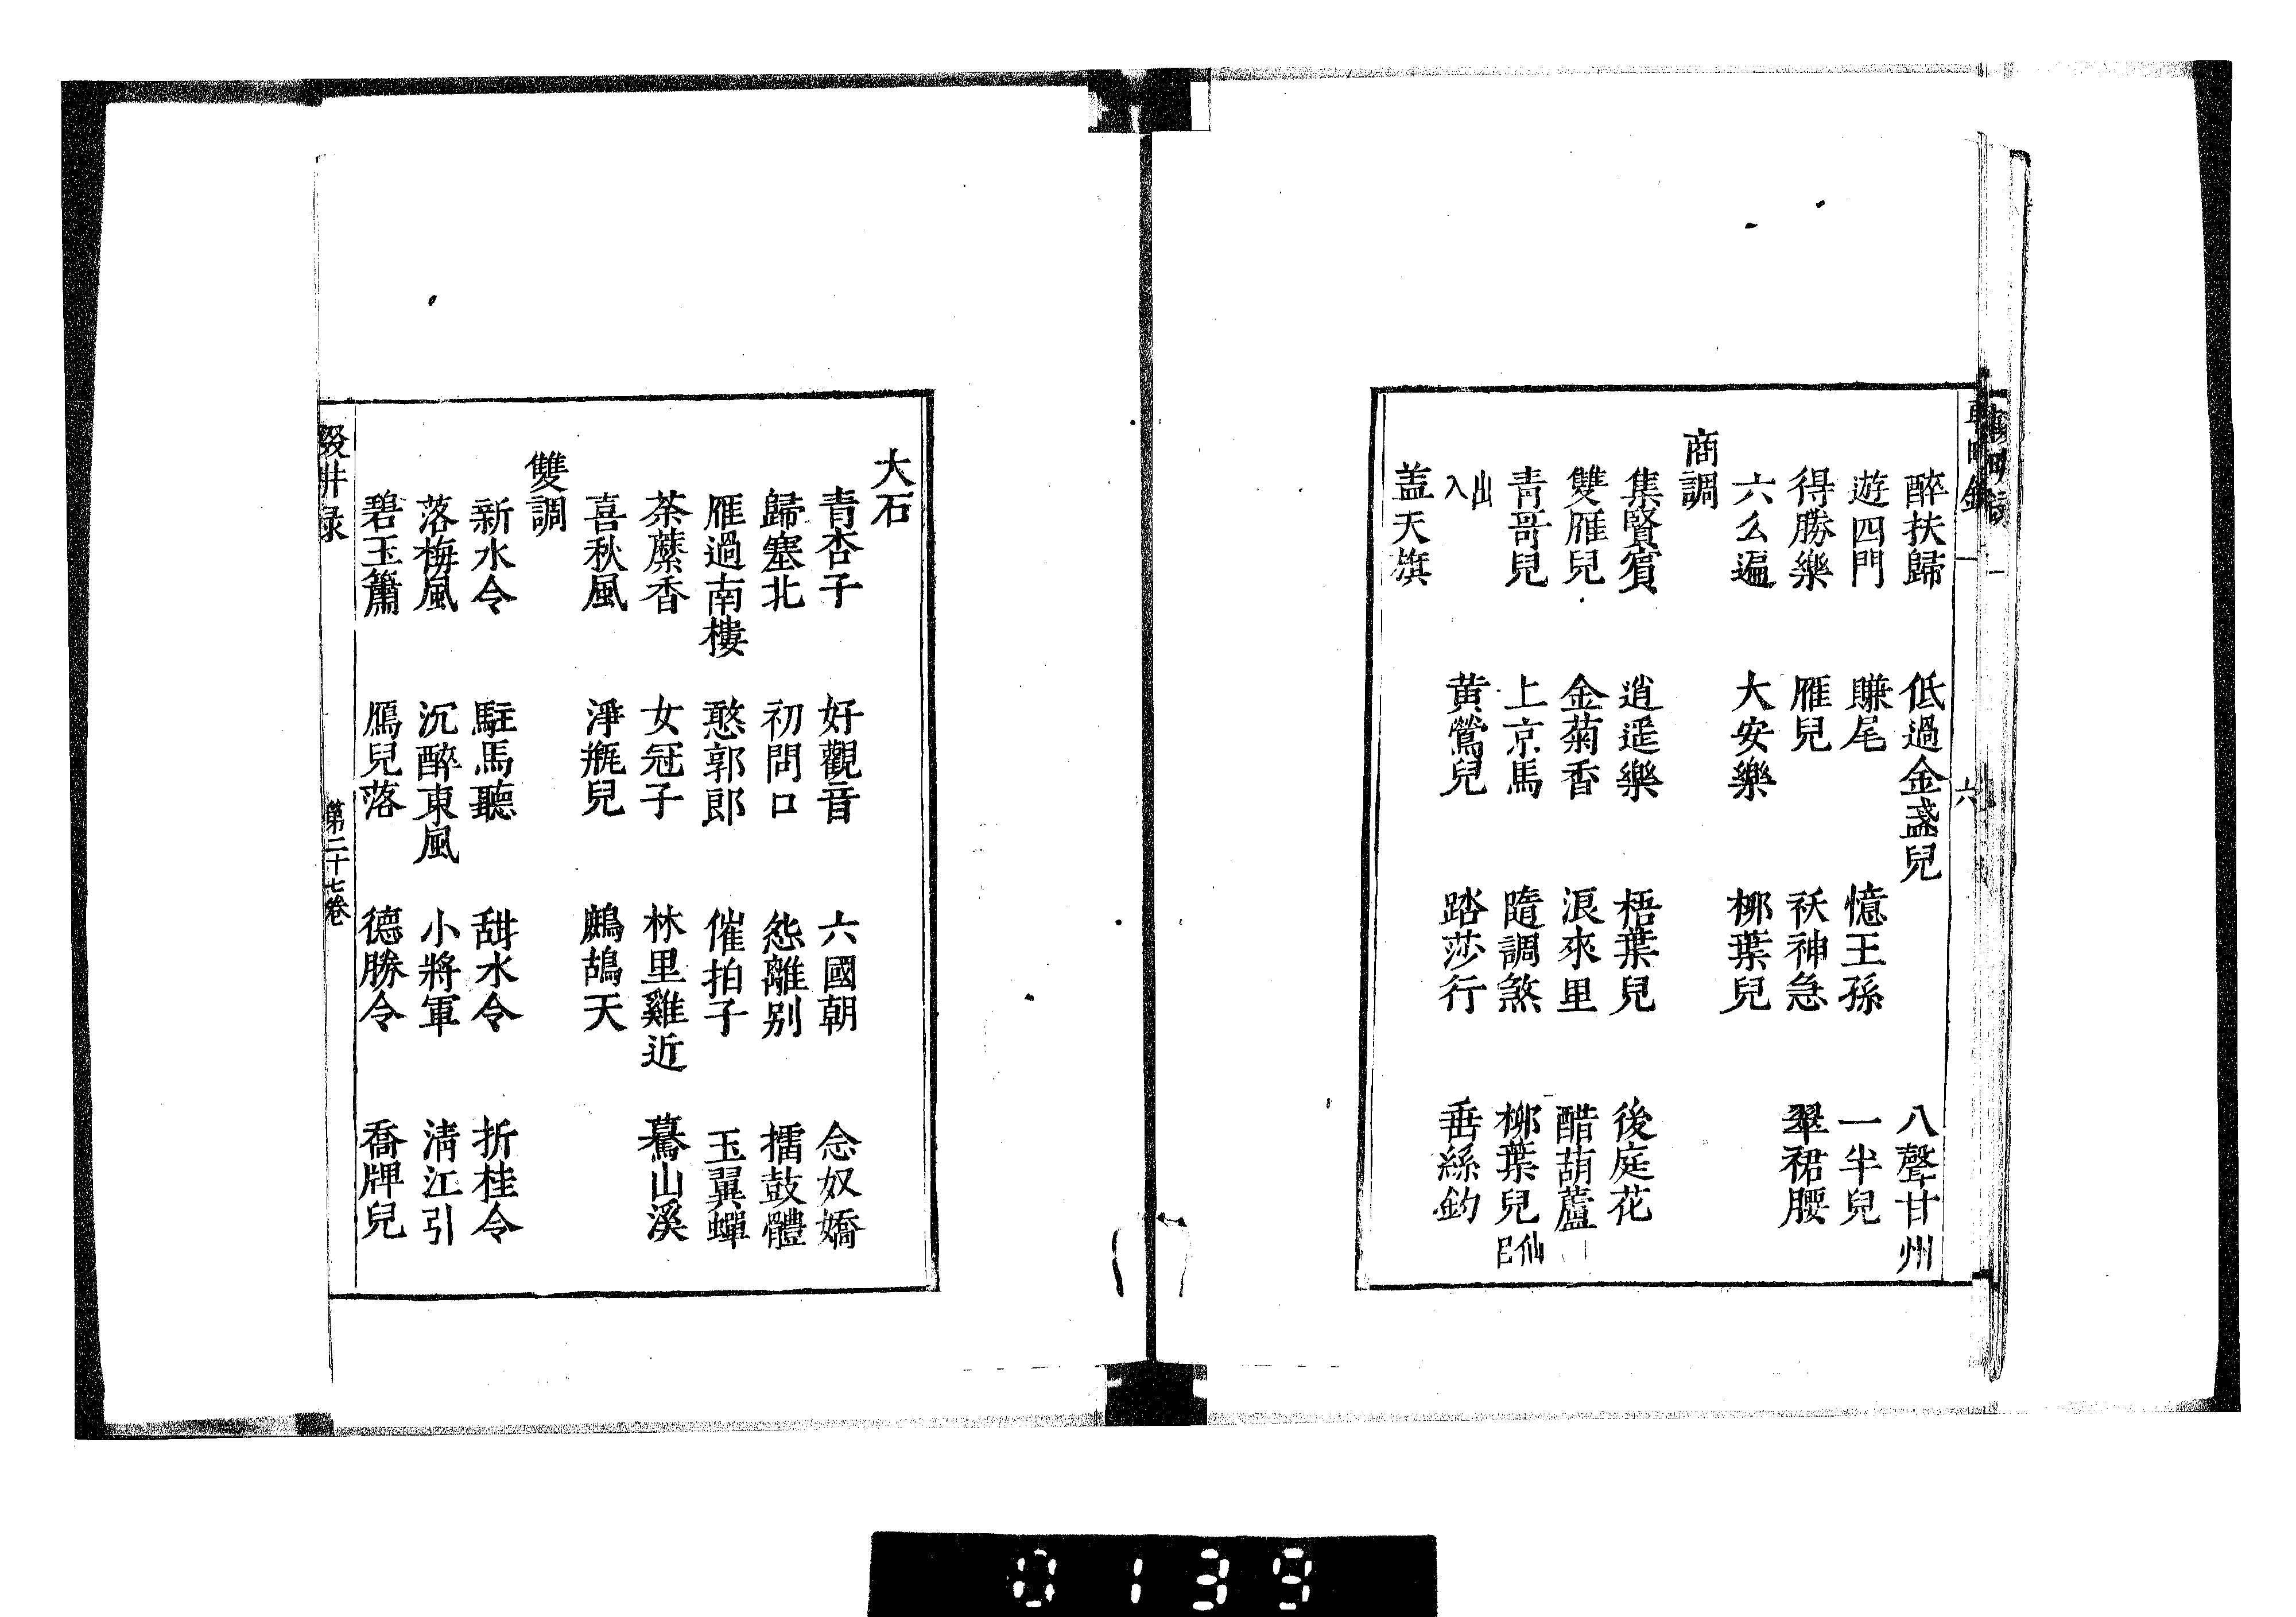 六
醉扶歸　低過金盞兒　八聲甘州
遊四門　賺尾　憶王孫　一半兒
得勝樂　雁兒　祆神急　翠裙腰
六么遍　大安樂　柳葉兒
商調
集賢賓　逍遥樂　梧葉兒　後庭花
雙雁兒　金菊香　浪來里　醋葫蘆
青哥兒　上京馬　隨調煞　柳葉兒仙呂
出入　黄鶯兒　踏莎行　垂絲釣
盖天旗
大石
青杏子　好觀音　六國朝　念奴嬌
歸塞北　初問口　怨離别　擂鼓體
雁過南樓　憨郭郎　催拍子　玉翼蟬
荼蘼香　女冠子　林里雞近　驀山溪
喜秋風　淨瓶兒　鷓鴣天
雙調
新水令　駐馬聽　甜水令　折桂令
落梅風　沉醉東風　小將軍　清江引
碧玉簫　鴈兒落　德勝令　喬牌兒
第二十七卷
0139